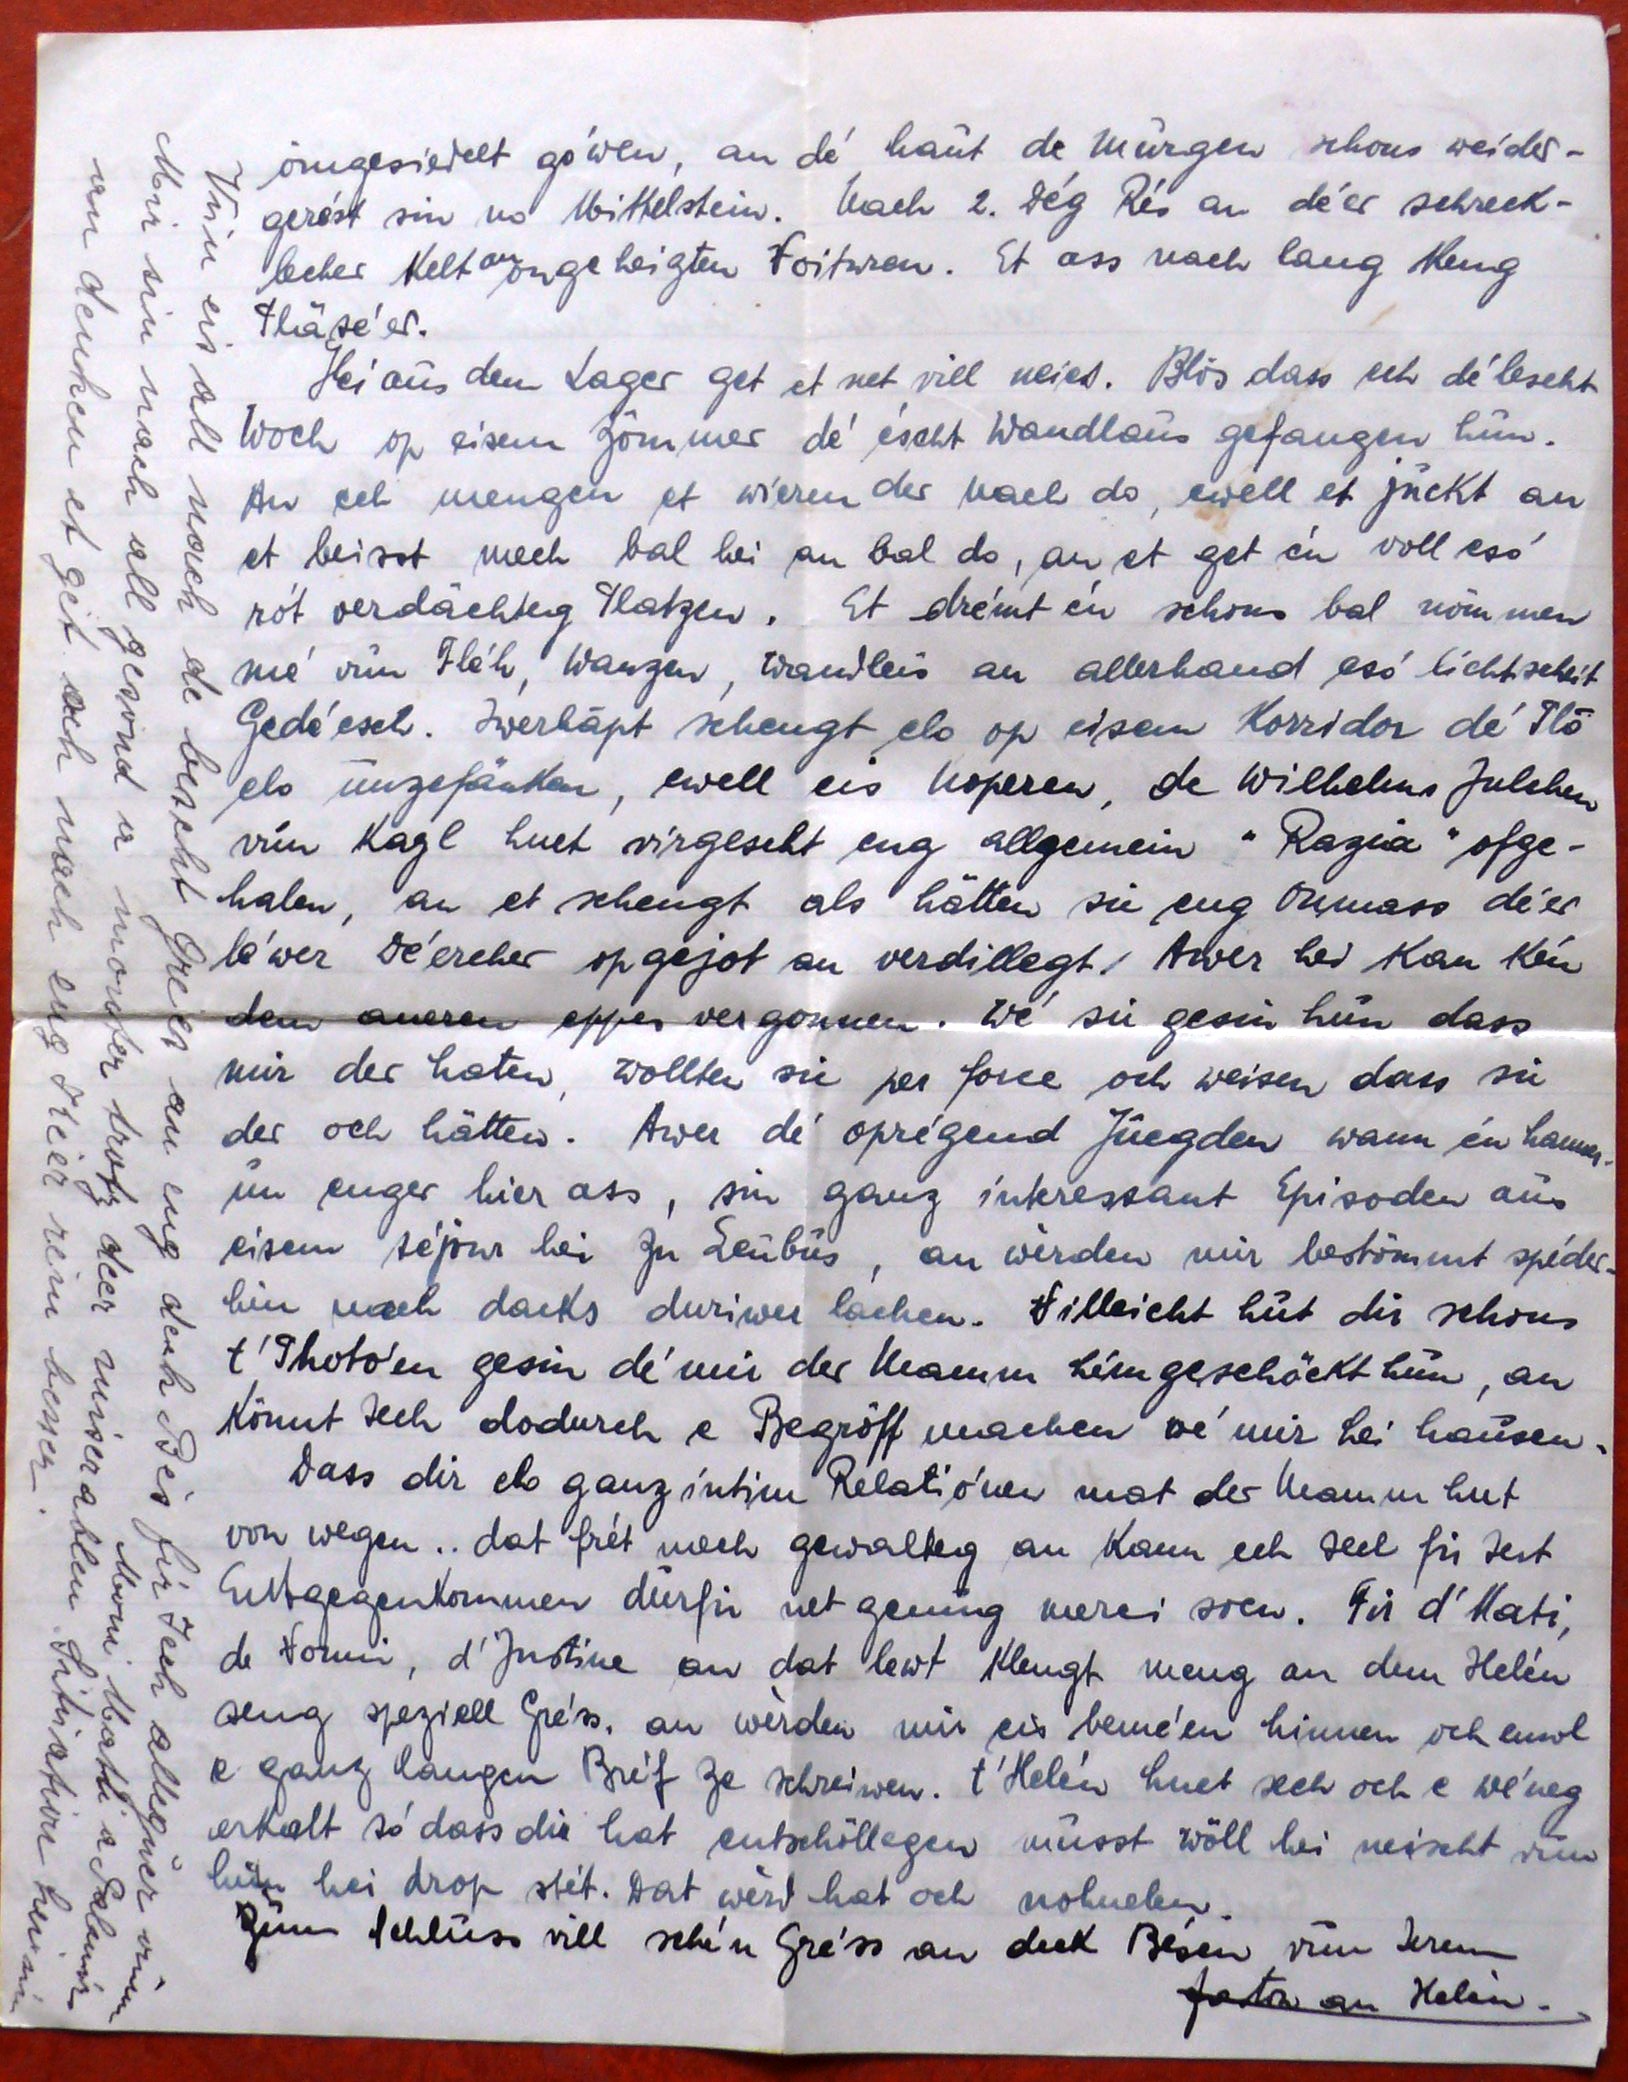 ömgesiedelt gówen, an dé haüt de Mürgen schons weider-
gerést sin no Mittelstein. Nach 2. Dég Rés an déer schreck-
lecher Kelt an ongeheizten Voituren. Et ass nach lang keng
Pläséer.
Hei aüs dem Lager get et net vill neies. Blós dass ech dé lescht
Woch op eisem Zömmer dé éscht Wandlaüs gefangen hün.
An ech mengen et wieren der nach do, ewell et jückt an
et beisst mech bal hei an bal do, an et get én voll esó
rót verdächteg Platzen. Et drémt én schons bal nömmen
mé vün Fléh, Wanzen, Wandleis an allerhand esó lichtscheit
Gedéesch. Iwerhäpt schengt elo op eisem Korridor dé Plō
elo ünzefänken, ewell eis Noperen, de Wilhelms Julchen
vün Kayl huet virgescht eng allgemein "Razia" ofge-
halen, an et schengt als hätten si eng Onmass déer
léwer Déercher opgejot an verdillegt! Awer hei kan kén
dem aneren eppes vergonnen. Wé si gesin hün dass
mir der haten, wollten si per force och weisen dass si
der och hätten. Awer dé oprégend Jüegden wann én hanner-
ün enger hier ass, sin ganz interessant Episoden aüs
eisem séjour hei zu Leübüs, an wèrden mir bestömmt spéder-
hin nach dacks duriwer lachen. Villeicht hüt dir schons
t'Photóen gesin dé mir der Mamm hémgeschöckt hün, an
könnt Iech dodurch e Begröff machen wé mir hei haüsen.
Dass dir elo ganz intim Relatiónen mat der Mamm hut
von wegen .. dat frét mech gewalteg an kann ech Iech fir Iert
Entgegenkommen dürfir net genüg merci soen. Fir d'Kati,
de Tommi, d'Justine an dat lewt klengt meng an dem Helén
seng speziell Gréss. an wèrden mir eis beméen hinnen och emol
e ganz langen Bréf ze schreiwen. t'Helén huet sech och e wéneg
erkalt só dass dir hat entschöllegen müsst wöll hei neischt vün
him hei drop stét. Dat wèrd hat och nohuelen.
Züm Schlüss vill schén Gréss an deck Bésen vün Ierem
Jostn an Helén.
Vün eis all nach de bescht Gréss an eng deck Bés fir Iech allegüer vün
Momi Kati a
Mir sin nach all gesond a monter trotz deer miserablen Situation hei
an denken et get och nach eng Kéier rëm besser.